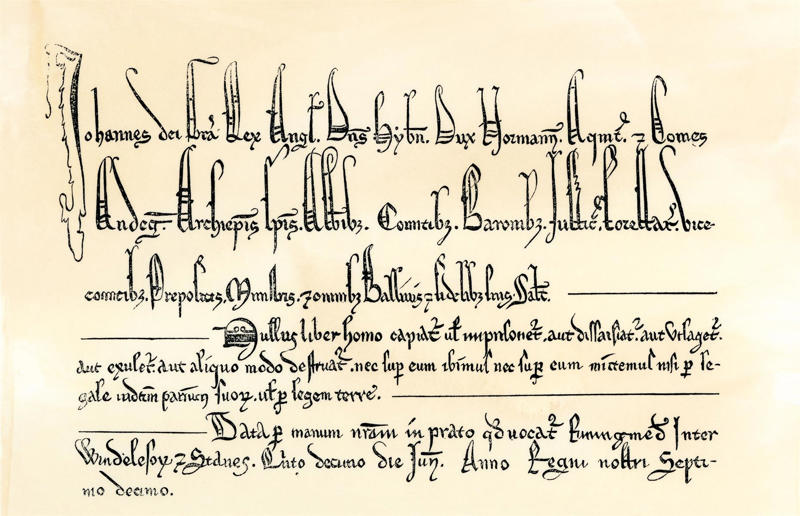 Johannes dei gra Rex Angl. Dns Hybn. Dux Normann. Aqint. ⁊ Comes
Andeg. Archiepis Epis. Abbibz. Comitibz. Baronibz. Justic. Forestar. Vice-
comitibz. Prepositis. Ministris. ⁊ omnibz Ballivis ⁊ fidelibz suis. Salt.
Nullus liber homo capiat ul imprisonet. aut dissaisiat. aut utlaget.
aut exulet. aut aliquo modo destruat. nec sup eum ibimus nec sup eum mittemus nisi p le-
gale judicm parium suor. ul p legem terre.
Data p manum nram in prato qd vocat Runingmed Inter
Windelesor ⁊ Stanes. Quinto decimo die Jun. Anno Regni nostri Septi-
mo decimo.